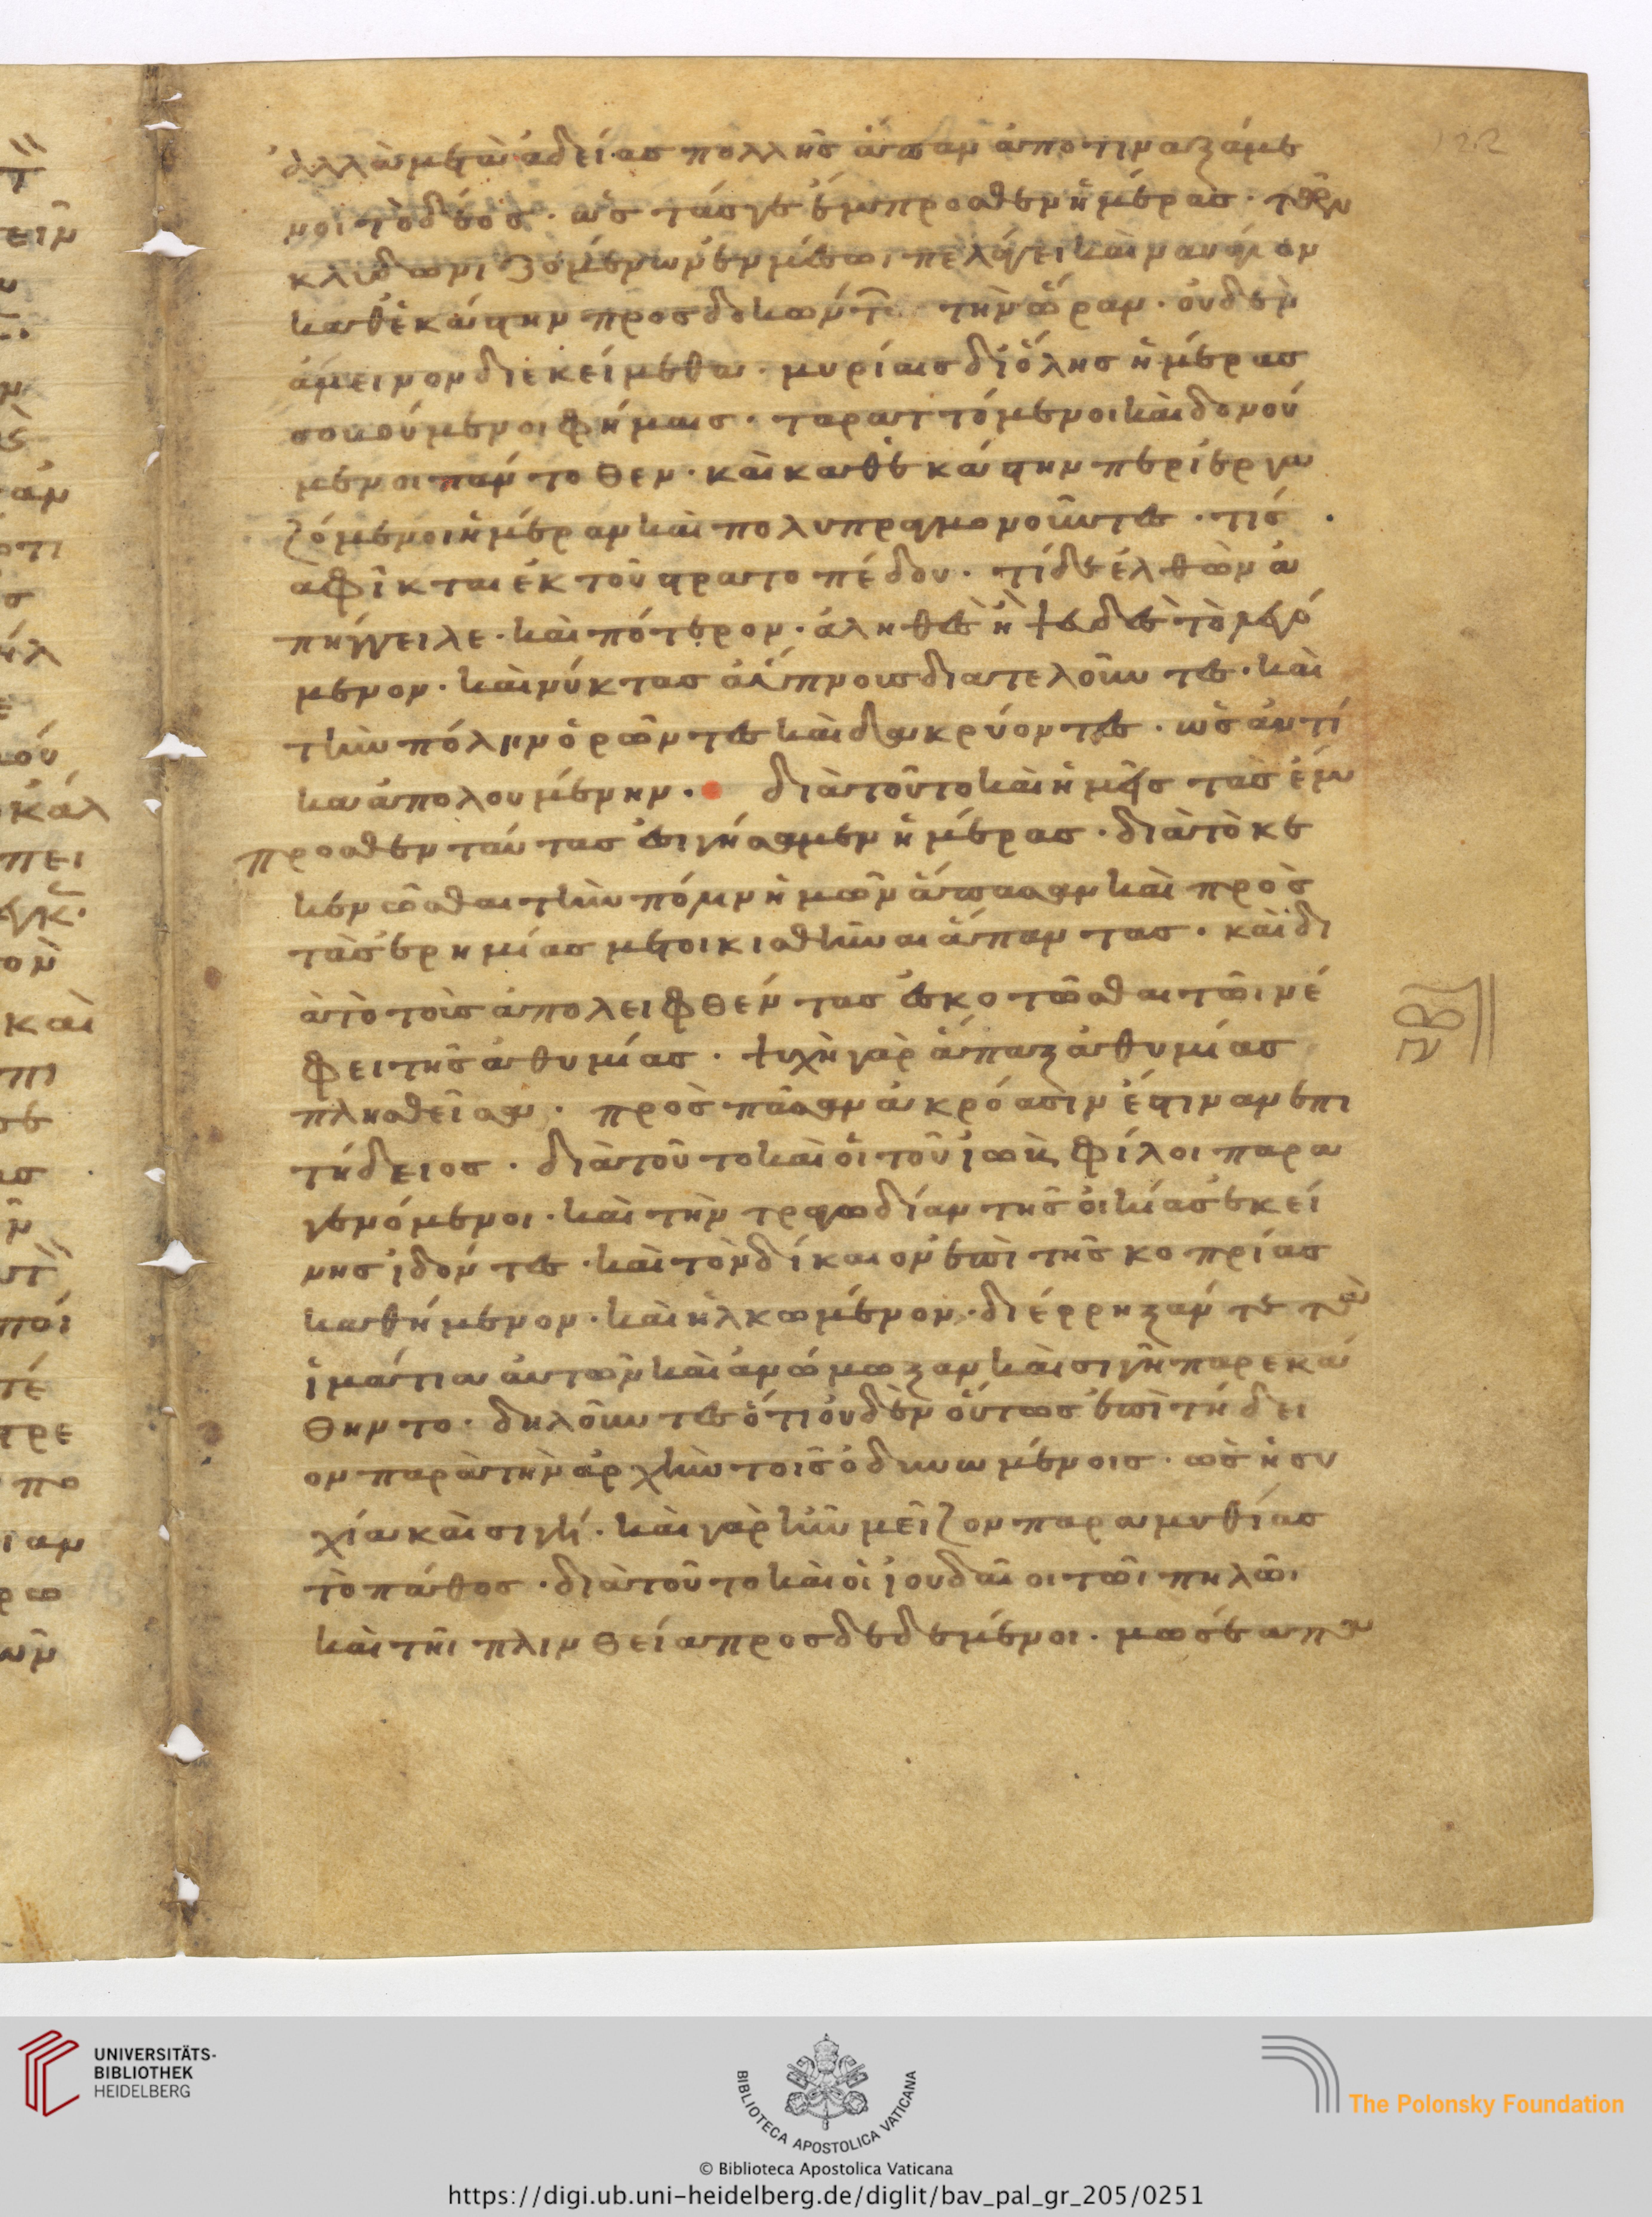 ἀλλὰ μετὰ ἀδείας πολλῆς ἅπαν ἀποτιναξάμε
νοι τὸ δέος· ὡς τάς γε ἔμπροσθεν ἡμέρας· τῶν
κλυδωνιζομένων ἐν μέσωι πελάγει καὶ ναυάγιον
καθἑκάστην προσδοκώντ τὴν ὥραν· οὐδὲν
ἄμεινον διεκείμεθα· μυρίαις δι' ὅλης ἡμέρας
σοβούμενοι φήμαις· ταραττόμενοι καὶ δονού
μενοι πάντοθεν· καὶ καθἑκάστην περιεργα
ζόμενοι ἡμέραν καὶ πολυπραγμονοῦντες· τίς
ἀφῖκται ἐκ τοῦ στρατοπέδου· τί δὲ ἐλθὼν ἀ
πήγγειλε· καὶ πότερον· ἀληθὲς ἢ ψεδὲς τὸ λεγό
μενον· καὶ νύκτας ἀΰπνους διατελοῦντες· καὶ
τὴν πόλιν ὁρῶντες καὶ δακρύοντες· ὡς αὐτί
κα ἀπολουμένην· διὰ τοῦτο καὶ ἡμεῖς τὰς ἔμ
προσθεν ταύτας ἐσιγήσαμεν ἡμέρας· διὰ τὸ κε
κενῶσθαι τὴν πόλιν ἡμῶν ἅπασαν καὶ πρὸς
τὰς ἐρημίας μετοικισθῆναι ἅπαντας· καὶ δι
ὰ τὸ τοὺς ἀπολειφθέντας ἐσκοτῶσθαι τῶι νέ
φει τῆς ἀθυμίας· ψυχὴ γὰρ ἅπαξ ἀθυμίας
πλησθεῖσα· πρὸς πᾶσαν ἀκρόασίν ἐστιν ἀνεπι
τήδειος· διὰ τοῦτο καὶ οἱ τοῦ ἰὼβ φίλοι παρα
γενόμενοι· καὶ τὴν τραγωδίαν τῆς οἰκίας ἐκεί
νης ἰδόντες· καὶ τὸν δίκαιον ἐπὶ τῆς κοπρίας
καθήμενον· καὶ ἡλκωμένον· διέρρηξάν τε τὰ
ἱμάτια αὐτῶν καὶ ἀνώμωξαν καὶ σιγῆ παρεκά
θηντο· δηλοῦντες ὅτι οὐδὲν οὕτως ἐπιτήδει
ον παρὰ τὴν ἀρχὴν τοῖς ὀδυνωμένοις· ὡς ἡσυ
χία καὶ σιγή· καὶ γὰρ ἦν μεῖζον παραμυθίας
τὸ πάθος· διὰ τοῦτο καὶ οἱ ἰουδαῖοι τῶι πηλῶι
καὶ τῆι πλινθεία προσδεδεμένοι· μωσέα
122
UNIVERSITÄTS-
BIBLIOTHEK
HEIDELBERG
BIBLIOTECA APOSTOLICA VATICANA
The Polonsky Foundation
© Biblioteca Apostolica Vaticana
https://digi.ub.uni-heidelberg.de/diglit/bav_pal_gr_205/0251